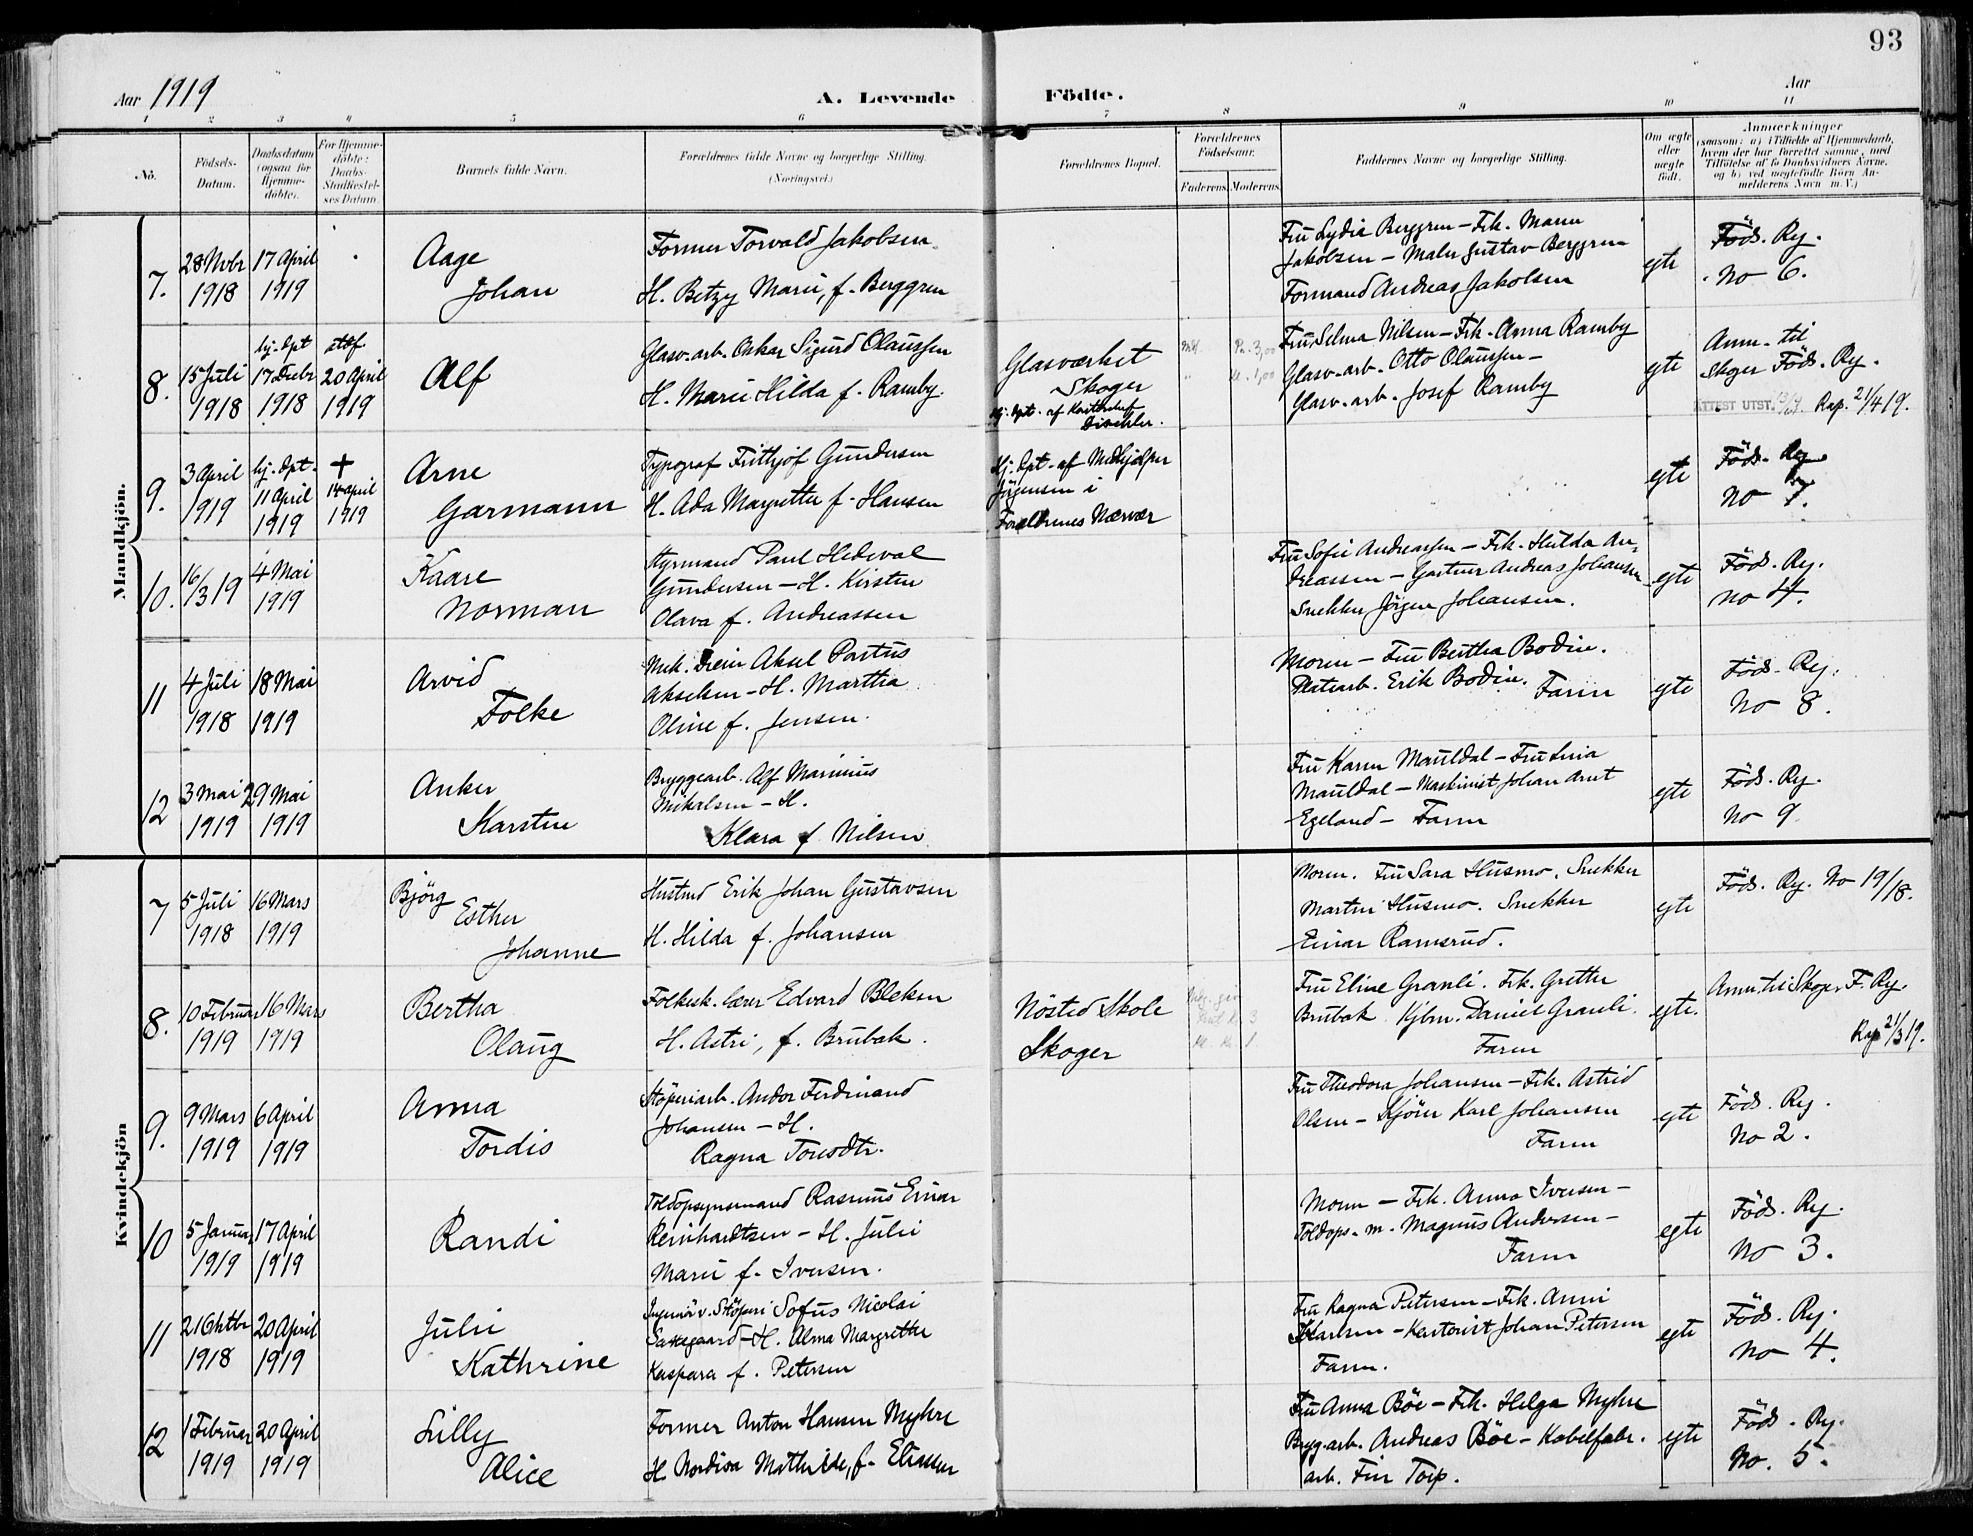 93
Aar 1919
A. Levende Födte.
Aar
1 2 3 4 5 6 7 8 9 10 11
No.
Födsels-
Datum.
Daabsdatum
(ogsaa for
Hjemme-
döbte).
For Hjemme-
döbte:
Daabs-
Stadfæstel-
ses Datum.
Barnets fulde Navn.
Forældrenes fulde Navne og borgerlige Stilling.
(Næringsvei.)
Forældrenes Bopæl.
Forældrenes
Födselsaar.
Faderens. Moderens.
Faddernes Navne og borgerlige Stilling.
Om ægte
eller
uægte
født.
Anmærkninger
(saasom: a) i Tilfælde af Hjemmedaab,
hvem der har forrettet samme, med
Tilföielse af to Daabsvidners Navne,
og b) ved uægtefödte Börn An-
melderens Navn m. V.)
Mandkjön.
7.
28 Novbr
1918
17 April
1919
Aage
Johan
Former Torvald Jakobsen
H. Betzy Marie, f. Berggren
Fru Lydia Berggren – Frk. Maren
Jakobsen – Maler Gustav Berggren
Formand Andreas Jakobsen
egte
Föds. Rg.
No 6.
8.
15 Juli
1918
hj. dpt
17 Debr
1918
stdf
20 April
1919
Alf
Glasv. arb. Oskar Sigurd Olaussen
H. Marie Hilda f. Ramby.
Glasværket
Skoger
hj. dpt. af Distriktslæge
Fru Selma Nilsen – Frk. Anna Ramby
Glasv. arb. Otto Olaussen –
Glasv. arb. Josef Ramby
egte
Anm. til
Skoger Föds. Rg.
ATTEST UTST. Rap. 21/4 19.
9.
3 April
1919
hj. dpt.
11 April
1919
+
14 April
1919
Arne
Garmann
Typograf Frithjof Gundersen
H. Ada Margrethe f. Hansen
Hj. dpt. af Medhjælper
Jörgensen i
Forældrenes Nærvær
egte
Föds. Rg.
No 7.
10.
16/3 19
4 Mai
1919
Kaare
Norman
Styrmand Paul Hedeval
Gundersen – H. Kirsten
Olava f. Andreassen
Fru Sofie Andreassen – Frk. Hulda An-
dreassen – Gartner Andreas Johansen
Snekker Jörgen Johansen.
egte
Föds. Rg.
No 4.
11
4 Juli
1918
18 Mai
1919
Arvid
Folke
Mek. Dreier Aksel Partus
Akselsen – H. Martha
Oline f. Jensen.
Moren – Fru Bertha Bodin.
Platearb. Erik Bodin. Faren
egte
Föds. Rg.
No 8.
12
3 Mai
1919
29 Mai
1919
Anker
Karsten
Bryggearb. Alf Marinius
Mikalsen – H.
Klara f. Nilsen
Fru Karen Mauldal – Fru Lina
Mauldal – Maskinist Johan Arnt
Egeland – Faren
egte
Föds. Rg.
No 9.
Kvindekjön
7
5 Juli
1918
16 Mars
1919
Björg
Esther
Johanne
Erik Johan Gustavsen
H. Hilda f. Johansen
Moren. Fru Sara Husmo. Snekker
Martin Husmo. Snekker
Einar Ramsrud.
egte
Föds. Rg. No 19/18.
8.
10 Februar
1919
16 Mars
1919
Bertha
Olaug
Folkesk. lærer Edvard Bleken
H. Astri, f. Brubak.
Nösted Skole
Skoger
Fru Eline Granli. Frk. Grethe
Brubak Kjbm. Daniel Granli.
Faren
egte.
Anm. til Skoger F. Rg.
Rap 21/3 19.
9.
9 Mars
1919
6 April
1919
Anna
Tordis
Stöperiarb. Andor Ferdinand
Johansen – H.
Ragna Torsdtr.
Fru Theodora Johansen – Frk. Astrid
Olsen – Kjörer Karl Johansen
Faren
egte
Föds. Rg.
No 2.
10
5 Januar
1919
17 April
1919
Randi
Toldopsynsmand Rasmus Einar
Reinhardtsen – H. Julie
Marie f. Iversen.
Moren – Frk. Anna Iversen –
Toldops. m. Magnus Andersen –
Faren
egte
Föds. Rg.
No 3.
11
21 Oktbr
1918
20 April
1919
Julie
Kathrine
Ingeniör v. Stöperi Sofus Nicolai
Saxegaard – H. Alma Margrethe
Kaspara f. Petersen
Fru Ragna Petersen – Frk. Anni
Karlsen – Kontorist Johan Petersen
Faren.
egte
Föds. Rg.
No 4.
12
1 Februar
1919
20 April
1919
Lilly
Alice
Former Anton Hansen Myhre
H. Nordisa Mathilde, f. Eliassen
Fru Anna Böe – Frk. Helga Myhre
Brygg. arb. Andreas Böe – Kabelfabr.
arb. Finn Torp.
egte
Föds. Rg.
No. 5.